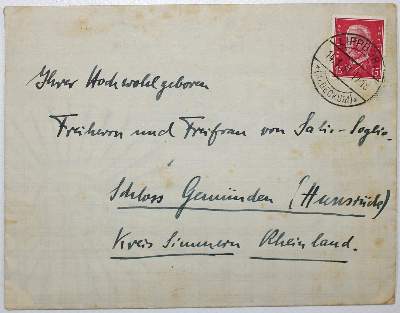 Ihrer Hochwohlgeboren
Freiherrn und Freifrau von Salis-Soglio
Schloss Gemünden (Hunsrück)
Kreis Simmern Rheinland.
15 15
(BECKUM)